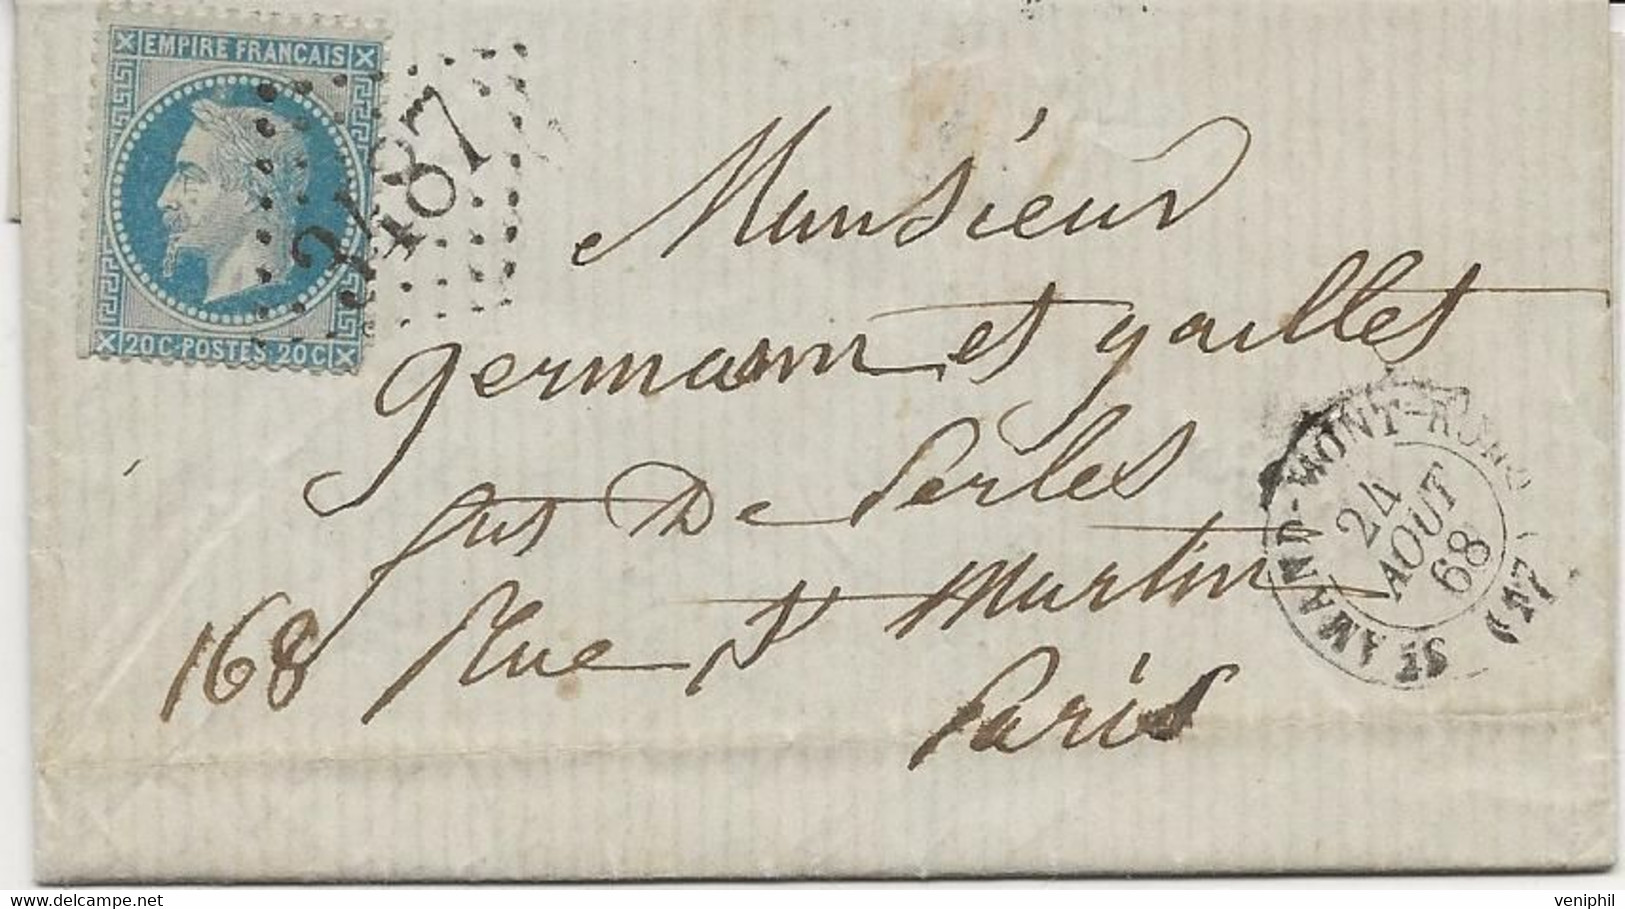 EMPIRE FRANÇAIS
20 C·POSTES·20 C
2487
Monsieur
germann et gaillet
fus De Perles
168 Rue St Martin
Paris
ST AMAND-MONT-ROND (17)
24
AOUT
68
delcampe.net
veniphil